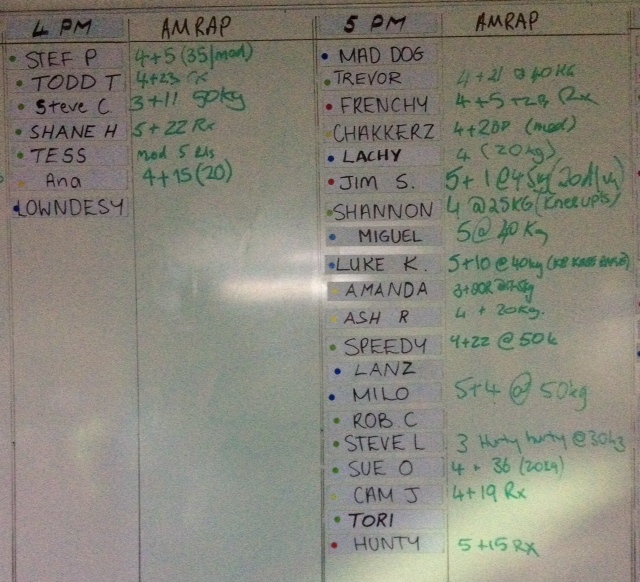 4 PM AMRAP
STEF P 4+5 (35/mod)
TODD T 4+23 rx
Steve C 3+11 50kg
SHANE H 5+22 Rx
TESS mod 5 Rds
Ana 4+15 (20)
LOWNDESY
5 PM AMRAP
MAD DOG
TREVOR 4+21 @ 40KG
FRENCHY 4+5 Rx
CHAKKERZ 4+ (mod)
LACHY 4 (20kg)
JIM S. 5+1 @45kg
SHANNON 4 @25KG (Knee up's)
MIGUEL 5@ 40 Kg
LUKE K. 5+10 @40kg
AMANDA
ASH R 4 + 20kg.
SPEEDY 4+22 @50k
LANZ
MILO 5+4 @ 50kg
ROB C
STEVE L 3 Hurty hurty @30kg
SUE O 4 + 36
CAM J 4+19 Rx
TORI
HUNTY 5+15 RX